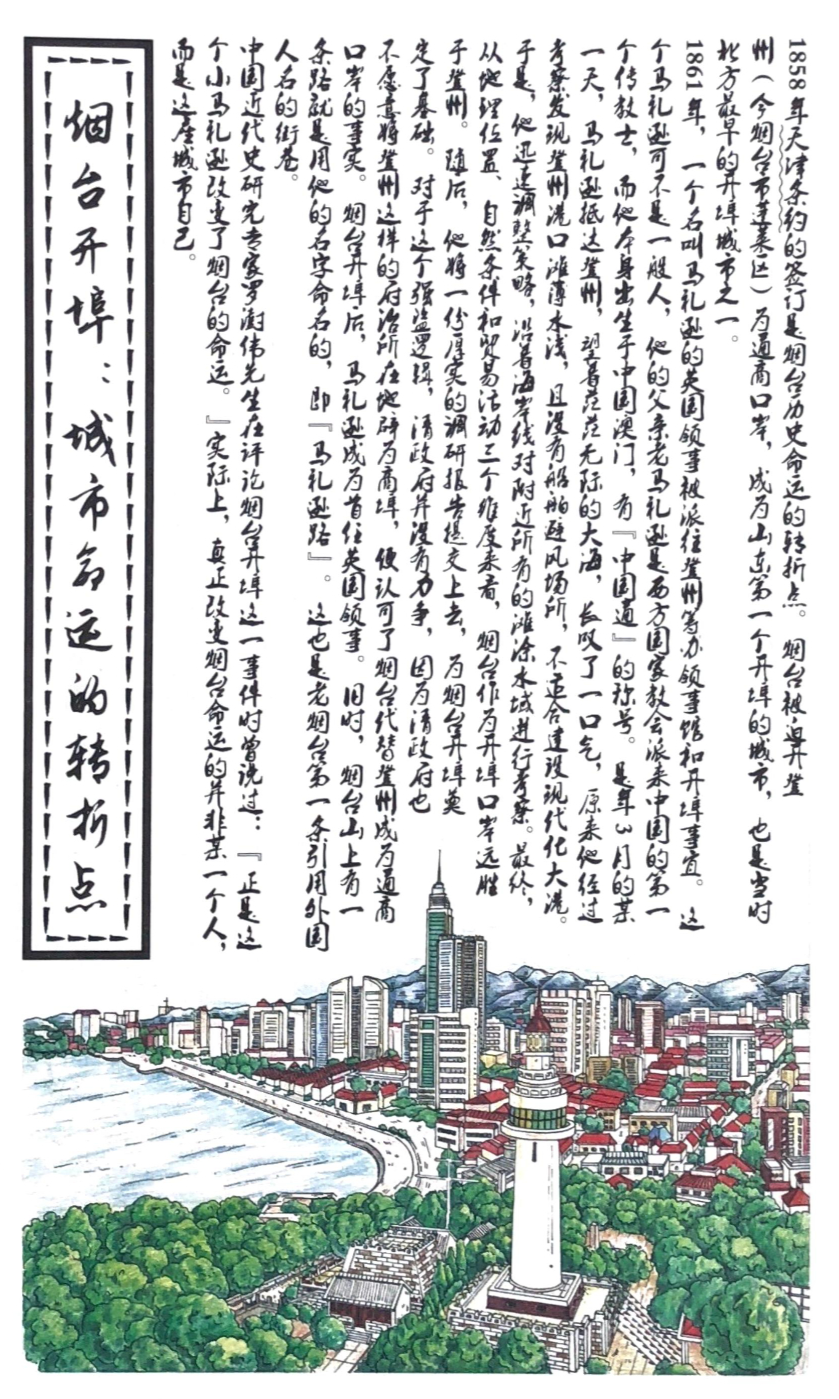 1858 年天津条约的签订是烟台历史命运的转折点。烟台被迫开登
州（今烟台市蓬莱区）为通商口岸，成为山东第一个开埠的城市，也是当时
北方最早的开埠城市之一。
1861 年，一个名叫马礼逊的英国领事被派往登州筹办领事馆和开埠事宜。这
个马礼逊可不是一般人，他的父亲老马礼逊是西方国家教会派来中国的第一
个传教士，而他本身出生于中国澳门，有『中国通』的称号。是年 3 月的某
一天，马礼逊抵达登州，望着茫茫无际的大海，长叹了一口气，原来他经过
考察发现登州港口滩薄水浅，且没有船舶避风场所，不适合建设现代化大港。
于是，他迅速调整策略，沿着海岸线对附近所有的滩涂水域进行考察。最终，
从地理位置、自然条件和贸易活动三个维度来看，烟台作为开埠口岸远胜
于登州。随后，他将一份厚实的调研报告提交上去，为烟台开埠奠
定了基础。对于这个强盗逻辑，清政府并没有力争，因为清政府也
不愿意将登州这样的府治所在地辟为商埠，便认可了烟台代替登州成为通商
口岸的事实。烟台开埠后，马礼逊成为首任英国领事。旧时，烟台山上有一
条路就是用他的名字命名的，即『马礼逊路』。这也是老烟台第一条引用外国
人名的街巷。
中国近代史研究专家罗澍伟先生在评论烟台开埠这一事件时曾说过：『正是这
个小马礼逊改变了烟台的命运。』实际上，真正改变烟台命运的并非某一个人，
而是这座城市自己。
烟台开埠：城市命运的转折点